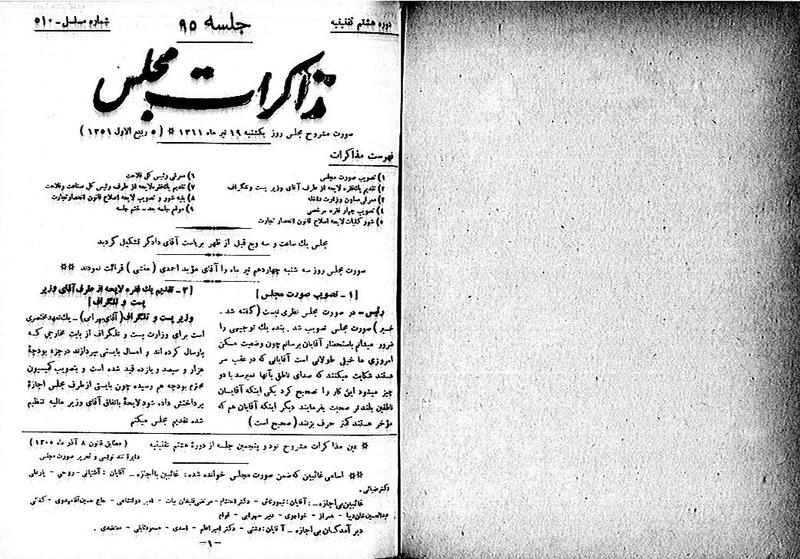 دوره هشتم تقنینیه
جلسه ۹۵
شماره مسلسل - ۵۱۰
مذاکرات مجلس
صورت مشروح مجلس روز یکشنبه ۱۹ تیر ماه ۱۳۱۱ * ( ۵ ربیع الاول ۱۳۵۱ )
فهرست مذاکرات
۱) تصویب صورت مجلس
۲) تقدیم یکفقره لایحه از طرف آقای وزیر پست و تلگراف
۳) معرفی معاون وزارت داخله
۴) تصویب چهار فقره مرخصی
۵) شور کلیات لایحه اصلاح قانون انحصار تجارت
۶) معرفی رئیس کل فلاحت
۷) تقدیم یکفقره لایحه از طرف رئیس کل صناعت و فلاحت
۸) بقیه شور و تصویب لایحه اصلاح قانون انحصار تجارت
۹) موقع جلسه بعد - ختم جلسه
مجلس یك ساعت و سه ربع قبل از ظهر بریاست آقای دادگر تشکیل گردید
صورت مجلس روز سه شنبه چهاردهم تیر ماه را آقای مؤید احمدی ( منشی ) قرائت نمودند **
[ ۱ - تصویب صورت مجلس ]
رئیس - در صورت مجلس نظری نیست ( گفته شد .
خیر ) صورت مجلس تصویب شد . بنده یك توجیهی را
ضرور میدانم باستحضار آقایان برسانم چون وضعیت مسکن
امروزی ما خیلی طولانی است آقایانی که در عقب سر
هستند شکایت میکنند که صدای ناطق بآنها نمیرسد با دو
چیز میشود این کار را تصحیح کرد یکی اینکه آقایان
ناطقین بلندتر صحبت بفرمایند دیگر اینکه آقایان هم که
مؤخر هستند کمتر حرف بزنند ( صحیح است )
[ ۲ - تقدیم یك فقره لایحه از طرف آقای وزیر
پست و تلگراف ]
وزیر پست و تلگراف ( آقای بهرامی ) - یك تعهد مختصری
است برای وزارت پست و تلگراف از بابت مخارجی که
پارسال کرده اند و امسال بایستی بپردازند در جزء بودجهٔ
هزار و سیصد و یازده قید شده است و بتصویب کمیسیون
محترم بودجه هم رسیده چون بایستی از طرف مجلس اجازهٔ
پرداختش داده شود لایحهٔ باتفاق آقای وزیر مالیه تنظیم
شده تقدیم مجلس میکنم
* عین مذاکرات مشروح نود و پنجمین جلسه از دورهٔ هشتم تقنینیه ( مطابق قانون ۸ آذر ماه ۱۳۰۵ )
دایرهٔ تند نویسی و تحریر صورت مجلس
** اسامی غائبین که ضمن صورت مجلس خوانده شده : غائبین با اجازه - آقایان : آشتیانی - روحی - یارعلی
دکتر ضیائی .
غائبین بی اجازه - آقایان : تیمورتاش - دکتر احتشام - مرتضی قلیخان بیات - امیر دولتشاهی - حاج حسین آقا مهدوی - کفائی
عبدالحسین خان دیبا - همراز - خواجوی - دبیر سهرابی - قوام
دیر آمدگان بی اجازه - آقایان : دشتی - دکتر امیراعلم - اسدی - مسعود ثابتی - معتضدی .
-۱-